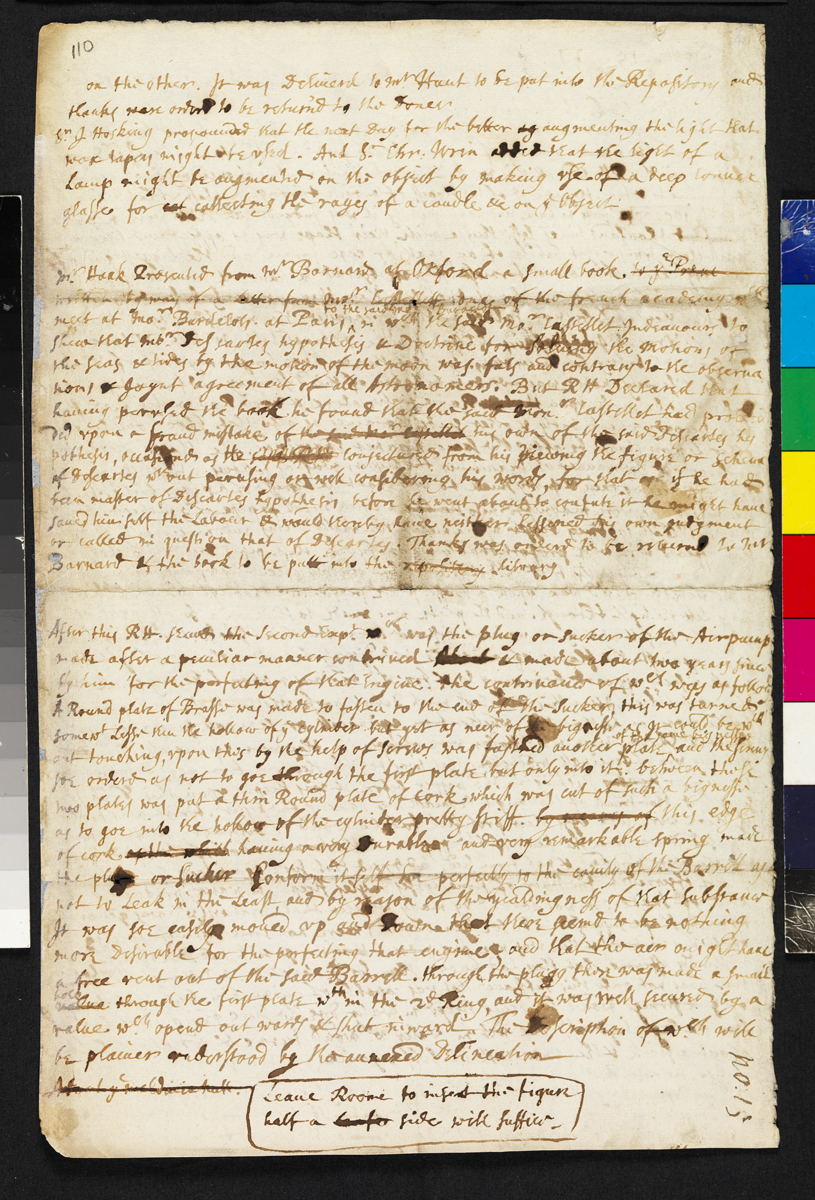 110
on the other. It was Deliuerd to mr Hunt to be put into the Repository and
thanks were orderd to be returnd to the Doner
Sr J Hosking propounded that the next Day for the better augmenting the light that
wax tapers might be used. And Sr Chr. Wren added that the light of a
Lamp might be augmented on the object by making use of a deep convex
glasse for collecting the rayes of a candle &c on ye Object
mr Haak Presented from Mr Barnard at Oxford a small book. to ye
written by way of a letter from Monsr Castellet one of the french academy wch
meet at Monr Burdelots. at Paris, in wch the said Monr Castellet Indeauours to
to the said
shew that Descartes hypothesis & Doctrine for the Motions of
the Seas & tides by the motion of the moon was fals and contrary to the observa
tions & Joynt agreement of all Astronomers. But RH Declared that
hauing perused the book he found that the said Monr Castellet had procee
ded upon a mistake of his own of the said Descartes his
pothesis, occasiond as he conjectured from his viewing the figure or Scheme
of Descartes wthout perusing or well considering his words, for that if he had
been master of Descartes hypothesis before he went about to confute it he might haue
saued himself the Labour & would therby haue neither Lessened his own judgment
or called in question that of Descartes. Thanks was orderd to be returnd to Mr
Barnard & the book to be put into the repository library
After this RH. shewd the Second Expt wch was the plug or sucker of the Air pump
made after a peculiar manner contriued & made about two years since
by him for the perfecting of that Engine. the contriuance of wch was as follow
A Round plate of Brasse was made to fasten to the end of the Sucker, this was turned
somewt Lesse then the hollow of ye cylinder but yet as neer of the bignesse as it could be wth
of the same bignesse
out touching, upon this by the help of screws was fastned another plate and the screws
soe orderd as not to goe through the first plate but only into it. between these
two plates was put a thin Round plate of cork which was cut of such a bignesse
as to goe into the hollow of the cylinder pretty stiff. by means of this edge
of cork hauing a very durable and very remarkable spring made
the plug or sucker Conform it self perfectly to the cauity of the Barrell as
not to Leak in the Least and by reason of the yealdingness of that substance
It was soe easily moued up and Down that there seemd to be nothing
more desirable for the perfecting that engine, and that the air might haue
a free vent out of the said Barrell. through the plugg there was made a small
hole
value through the first plate wthin the 2d Ring, and it was well secured by a
value wch opend outwards & shut inward. The Description of wch will
be plainer understood by the annexed Delineation
Leaue Roome to insert the figure
half a side will suffice.
no. 15